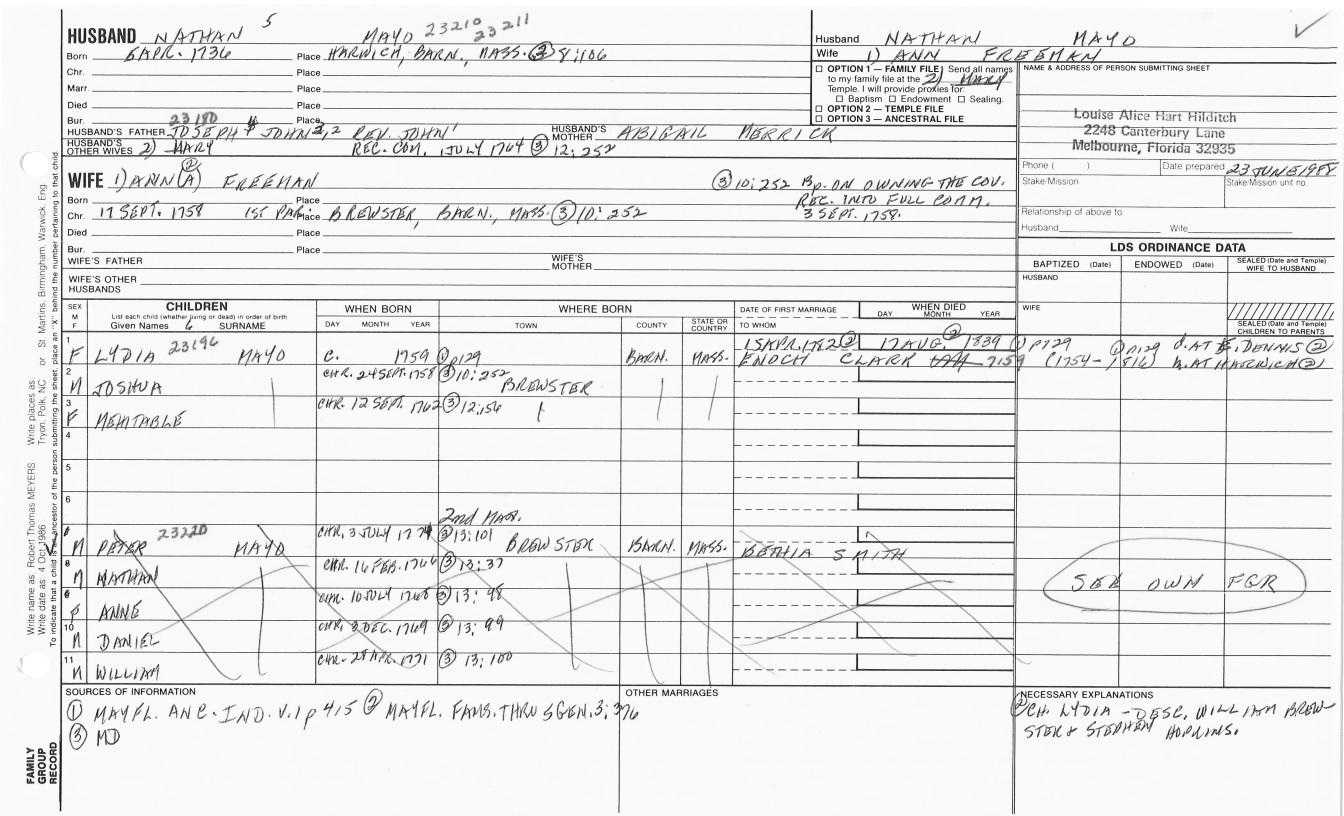 HUSBAND NATHAN 5 MAYO 23210 23211
Born 6 APR. 1736 Place HARWICH, BARN., MASS. ③ 8:106
Chr. Place
Marr. Place
Died Place
Bur. Place
23180
HUSBAND'S FATHER JOSEPH 4 JOHN 3, 2 REV. JOHN 1 HUSBAND'S MOTHER ABIGAIL MERRICK
HUSBAND'S OTHER WIVES 2) MARY REC. COM. 1 JULY 1764 ③ 12:252
Husband NATHAN MAYO
Wife 1) ANN FREEMAN
2) MARY
OPTION 1 — FAMILY FILE Send all names
to my family file at the
Temple. I will provide proxies for
Baptism Endowment Sealing.
OPTION 2 — TEMPLE FILE
OPTION 3 — ANCESTRAL FILE
NAME & ADDRESS OF PERSON SUBMITTING SHEET
Louise Alice Hart Hilditch
2248 Canterbury Lane
Melbourne, Florida 32935
Phone ( ) Date prepared 23 JUNE 1988
Stake/Mission Stake/Mission unit no.
Relationship of above to
Husband Wife
WIFE 1) ANN (A) ② FREEMAN ③ 10:252 Bp. ON OWNING THE COV.
REC. INTO FULL COMM.
3 SEPT. 1758.
Born Place
Chr. 17 SEPT. 1758 1ST PAR. Place BREWSTER, BARN., MASS. ③ 10:252
Died Place
Bur. Place
WIFE'S FATHER WIFE'S MOTHER
WIFE'S OTHER HUSBANDS
LDS ORDINANCE DATA
BAPTIZED (Date) ENDOWED (Date) SEALED (Date and Temple) WIFE TO HUSBAND
HUSBAND
WIFE
SEALED (Date and Temple) CHILDREN TO PARENTS
SEX M F
CHILDREN
List each child (whether living or dead) in order of birth
Given Names 6 SURNAME
WHEN BORN
DAY MONTH YEAR
WHERE BORN
TOWN COUNTY STATE OR COUNTRY
DATE OF FIRST MARRIAGE
TO WHOM
WHEN DIED
DAY MONTH YEAR
1 F LYDIA 23196 MAYO c. 1759 ① p129 BARN. MASS. 15 APR. 1782 ② 17 AUG. ② 1839 ① p129 ① p129 d. AT E. DENNIS ②
ENOCH CLARK 7159 (1754-1816) m. AT HARWICH ②
2 M JOSHUA CHR. 24 SEPT. 1758 ③ 10:252 BREWSTER
3 F MEHITABLE CHR. 12 SEPT. 1762 ③ 12:156
4
5
6
2nd Marr.
M PETER 23220 MAYO CHR. 3 JULY 1774 ③ 13:101 BREWSTER BARN. MASS. BETHIA SMITH
8 M NATHAN CHR. 16 FEB. 1766 ③ 13:37
F ANNE CHR. 10 JULY 1768 ③ 13:98
10 M DANIEL CHR. 3 DEC. 1769 ③ 13:99
11 M WILLIAM CHR. 28 APR. 1771 ③ 13:100
SEE OWN FGR
SOURCES OF INFORMATION
① MAYFL. ANC. IND. V.1 p 415 ② MAYFL. FAMS. THRU 5 GEN. 3:376
③ MD
OTHER MARRIAGES
NECESSARY EXPLANATIONS
② CH. LYDIA - DESC. WILLIAM BREW-
STER & STEPHEN HOPKINS.
Write name as Robert Thomas MEYERS Write places as Tryon, Polk, NC or St Martins, Birmingham, Warwick, Eng.
Write date as 4 Oct 1986
To indicate that a child is an ancestor of the person submitting the sheet, place an "X" behind the number pertaining to that child.
FAMILY
GROUP
RECORD